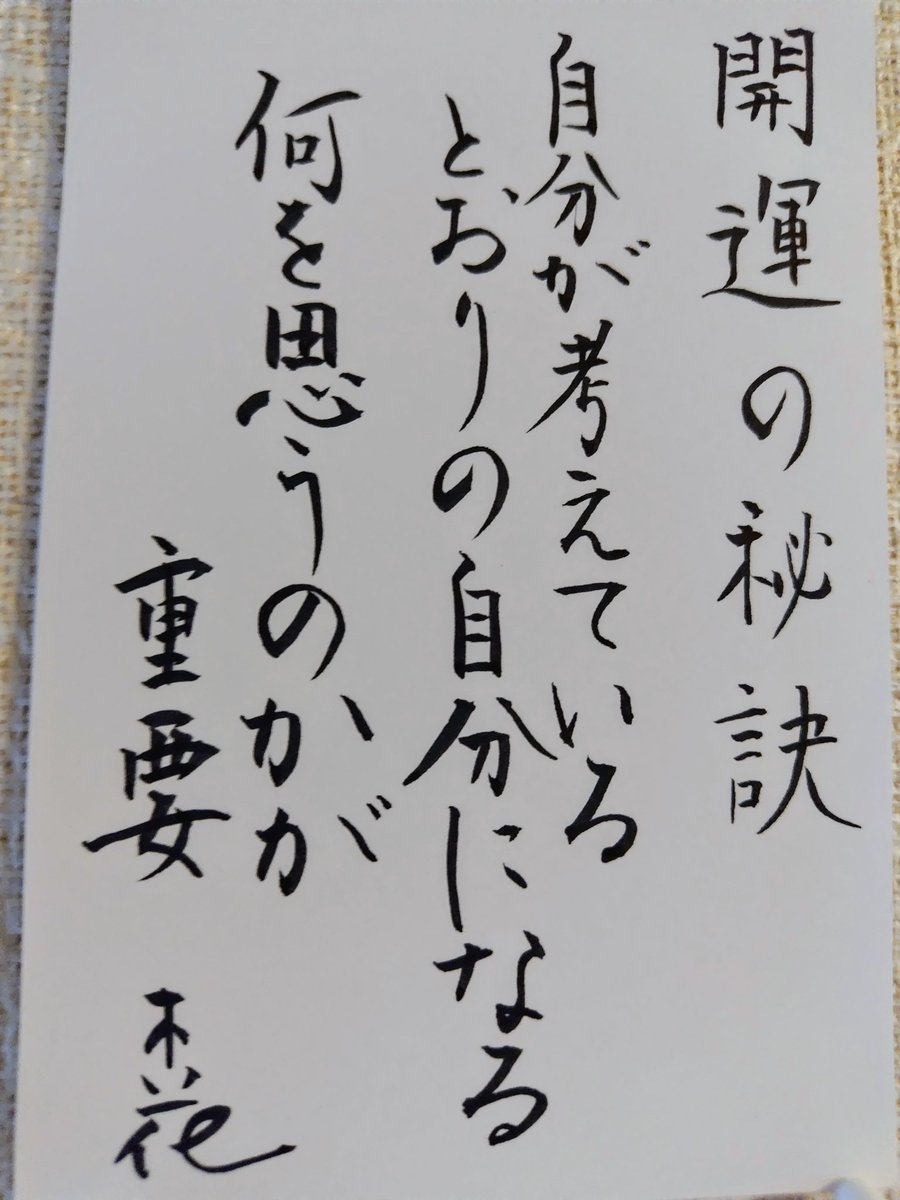 開運の秘訣
自分が考えている
とおりの自分になる
何を思うのかが
重要
木花